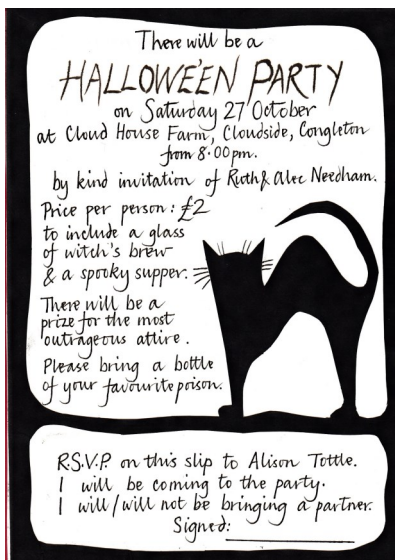 There will be a
HALLOWE'EN PARTY
on Saturday 27 October
at Cloud House Farm, Cloudside, Congleton
from 8.00pm.
by kind invitation of Ruth & Alec Needham.
Price per person: £2
to include a glass
of witch's brew
& a spooky supper.
There will be a
prize for the most
outrageous attire.
Please bring a bottle
of your favourite poison.
R.S.V.P. on this slip to Alison Tottle.
I will be coming to the party.
I will/will not be bringing a partner.
Signed: